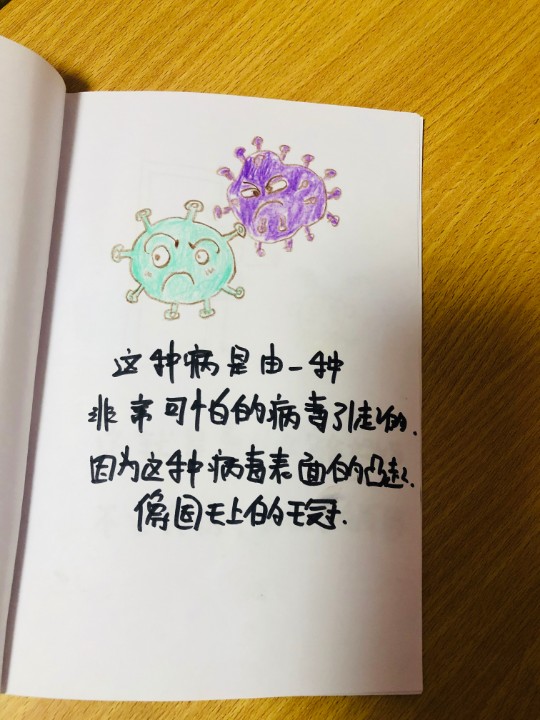 这种病是由一种
非常可怕的病毒引起的.
因为这种病毒表面的凸起.
像国王上的王冠.